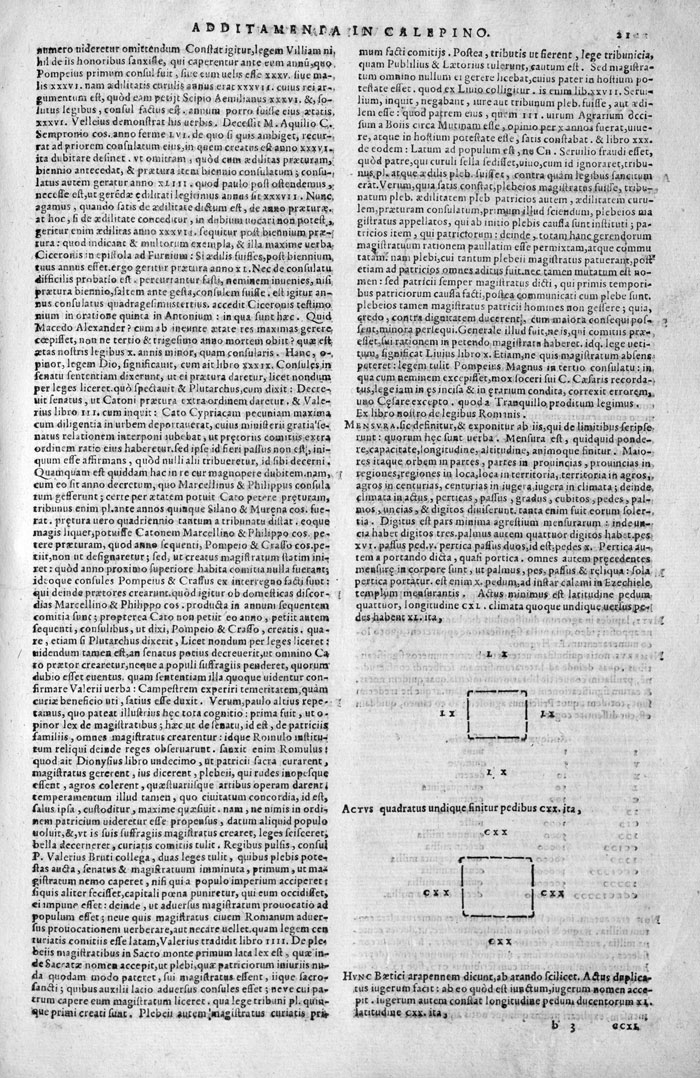 ADDITAMENTA IN CALEPINO.
numero uideretur omittendum Constat igitur, legem Villiam ni
hil de iis honoribus sanxisse, qui caperentur ante eum annū, quo
Pompeius primum consul fuit, siue cum uelis esse xxxv. siue ma-
lis xxxvi. nam ædilitatis curulis annus erat xxxvii. cuius rei ar-
gumentum est, quòd eam petijt Scipio Aemilianus xxxvi. &, so-
lutus legibus, consul factus est. annum porro fuisse eius ætatis,
xxxvi. Velleius demonstrat his uerbis. Decessit M. Aquilio C.
Sempronio cos. anno ferme lvi. de quo si quis ambiget, recur-
rat ad priorem consulatum eius, in quem creatus est anno xxxvi.
ita dubitare desinet. vt omitram, quòd cùm ædilitas præturam,
biennio antecedat, & prætura item biennio consulatum; consu-
latus autem geratur anno xliii. quod paulo post ostendemus,
necesse est, ut gerēdæ ædilitati legitimus annus sit xxxvii. Nunc,
agamus, quando satis de ædilitate dictum est, de anno præturæ.
at hoc, si de ædilitate conceditur, in dubium uocari non potest,
geritur enim ædilitas anno xxxvii. sequitur post biennium præ-
tura: quod indicant & multorum exempla, & illa maxime uerba
Ciceronis in epistola ad Furnium: Si ædilis fuisses, post biennium,
tuus annus esset. ergo geritur prætura anno xl. Nec de consulatu
difficilis probatio est. percurrantur fasti, neminem inuenies, nisi
prætura biennio, saltem ante gesta, consulem fuisse. est igitur an-
nus consulatus quadragesimustertius. accedit Ciceronis testimo
nium in oratione quinta in Antonium: in qua sunt hæc. Quid
Macedo Alexander? cum ab ineunte ætate res maximas gerere
cœpisset, non ne tertio & trigesimo anno mortem obiit? quæ est
ætas nostris legibus x. annis minor, quam consularis. Hanc, o-
pinor, legem Dio, significauit, cum ait libro xxxix. Consules in
senatu sententiam dixerunt, ut ei prætura daretur, licet nondum
per leges liceret. quò spectauit & Plutarchus, cum dixit: Decre-
uit senatus, ut Catoni prætura extra ordinem daretur. & Vale-
rius libro iii. cum inquit: Cato Cypriacam pecuniam maxima
cum diligentia in urbem deportauerat, cuius ministerii gratia se-
natus relationem interponi iubebat, ut prętoriis comitiis extra
ordinem ratio eius haberetur. sed ipse id fieri passus non est, ini-
quum esse affirmans, quòd nulli alii tribueretur, id sibi decerni.
Quamquam est quiddam hac in re cur magnopere dubitem. nam,
cum eo sit anno decretum, quo Marcellinus & Philippus consula
tum gesserunt; certe per ætatem potuit Cato petere pręturam,
tribunus enim pl. ante annos quinque Silano & Murena cos. fue-
rat. prętura uero quadriennio tantum a tribunatu distat. eoque
magis liquet, potuisse Catonem Marcellino & Philippo cos. pe-
tere præturam, quòd anno sequenti, Pompeio & Crasso cos. pe-
tiit, non ut designaretur; sed, ut creatus magistratum statim ini-
ret: quòd anno proximo superiore habita comitia nulla fuerant;
ideoque consules Pompeius & Crassus ex interregno facti sunt:
qui deinde prætores crearunt. quòd igitur ob domesticas discor-
dias Marcellino & Philippo cos. producta in annum sequentem
comitia sunt; propterea Cato non petiit eo anno, petiit autem
sequenti, consulibus, ut dixi, Pompeio & Crasso, creatis. qua-
re, etiam si Plutarchus dixerit, Licet nondum per leges liceret:
uidendum tamen est, an senatus potius decreuerit, ut omnino Ca
to prætor crearetur, neque a populi suffragiis penderet, quorum
dubio esset euentus. quam sententiam illa quoque uidentur con-
firmare Valerii uerba: Campestrem experiri temeritatem, quàm
curiæ beneficio uti, satius esse duxit. Verum, paulo altius repe-
tamus, quo pateat illustrius hęc tota cognitio: prima fuit, ut o-
pinor lex de magistratibus; hæc ut de senatu, id est, de patriciis
familiis, omnes magistratus crearentur: idque Romulo institu-
tum reliqui deinde reges obseruarunt. sanxit enim Romulus:
quod ait Dionysius libro undecimo, ut patricii sacra curarent,
magistratus gererent, ius dicerent, plebeii, qui rudes inopesque
essent, agros colerent, quæstuariisque artibus operam darent;
temperamentum illud tamen, quo ciuitatum concordia, id est,
salus ipsa, custoditur, maxime quæsiuit. nam, ne nimis in ordi-
nem patricium uideretur esse propensus, datum aliquid populo
uoluit, &, vt is suis suffragiis magistratus crearet, leges scisceret,
bella decerneret, curiatis comitiis tulit. Regibus pulsis, consul
P. Valerius Bruti collega, duas leges tulit, quibus plebis pote-
stas aucta, senatus & magistratuum imminuta, primum, ut ma-
gistratum nemo caperet, nisi qui a populo imperium acciperet:
siquis aliter fecisset, capitali pœna puniretur, qui eum occidisset,
ei impune esset: deinde, ut aduersus magistratus prouocatio ad
populum esset; neue quis magistratus ciuem Romanum aduer-
sus prouocationem uerberare, aut necare uellet. quam legem cen
turiatis comitiis esse latam, Valerius tradidit libro iiii. De ple-
beiis magistratibus in Sacro monte primum lata lex est, quæ in-
de Sacratæ nomen accepit, ut plebi, quæ patriciorum iniuriis nu-
da quodam modo pateret, sui magistratus essent, iique sacro-
sancti; quibus auxilii latio aduersus consules esset; neve cui pa-
trum capere eum magistratum liceret. qua lege tribuni pl. quin-
que primi creati sunt. Plebeii autem magistratus curiatis pri-
mum facti comitijs. Postea, tributis ut fierent, lege tribunicia,
quam Publilius & Lætorius tulerunt, cautum est. Sed magistra-
tum omnino nullum ei gerere licebat, cuius pater in hostium po-
testate esset. quod ex Liuio colligitur. is enim lib. xxvii. Serui-
lium, inquit, negabant, iure aut tribunum pleb. fuisse, aut ædi-
lem esse: quòd patrem eius, quem iii. uirum Agrarium occi-
sum a Boiis circa Mutinam esse, opinio per x annos fuerat, uiue-
re, atque in hostium potestate esse, satis constabat. & libro xxx.
de eodem: Latum ad populum est, ne Cn. Seruilio fraudi esset,
quòd patre, qui curuli sella sedisset, uiuo, cum id ignoraret, tribu-
nus pl. atque ædilis pleb. fuisset, contra quàm legibus sancitum
erat. Verum, quia satis constat, plebeios magistratus fuisse, tribu-
natum pleb. ædilitatem pleb. patricios autem, ædilitatem curu-
lem, præturam consulatum, primum, illud sciendum, plebeios ma
gistratus appellatos, qui ab initio plebis caussa sunt instituti; pa-
tricios item, qui patriciorum: deinde, totam hanc gerendorum
magistratuum rationem paullatim esse permixtam, atque commu
tatam. nam plebei, cui tantum plebeii magistratus patuerant, post
etiam ad patricios omnes aditus fuit. nec tamen mutatum est no-
men: sed patricii semper magistratus dicti, qui primis tempori-
bus patriciorum caussa facti, postea communicati cum plebe sunt.
plebeios tamen magistratus patricii homines non gessere; quia,
credo, contra dignitatem ducerent, cum maiora consequi pos-
sent, minora persequi. Generale illud fuit, ne is, qui comitiis præ-
esset, sui rationem in petendo magistratu haberet. idq. lege uetti-
tum, significat Liuius libro x. Etiam, ne quis magistratum absens
peteret: legem tulit Pompeius Magnus in tertio consulatu: in
qua cum neminem excepisset, mox soceri sui C. Cæsaris recorda-
tus, lege iam in ęs incisa & in ęrarium condita, correxit errorem,
uno Cęsare excepto. quod a Tranquillo proditum legimus.
Ex libro nostro de legibus Romanis.
MENSVRA. sic definitur, & exponitur ab iis, qui de limitibus scripse
runt: quorum hęc sunt uerba. Mensura est, quidquid ponde-
re, capacitate, longitudine, altitudine, animoque finitur. Maio-
res itaque orbem in partes, partes in prouincias, prouincias in
regiones, regiones in loca, loca in territoria, territoria in agros,
agros in centurias, centurias in iugera, iugera in climata; deinde,
climata in actus, perticas, passus, gradus, cubitos, pedes, pal-
mos, uncias, & digitos diuiserunt. tanta enim fuit eorum soler-
tia. Digitus est pars minima agrestium mensurarum: inde un-
cia habet digitos tres. palmus autem quattuor digitos habet. pes
xvi. passus ped. v. pertica passus duos, id est, pedes x. Pertica au-
tem a portando dicta, quasi portica. omnes autem pręcedentes
mensurę in corpore sunt, ut palmus, pes, passus & reliqua: sola
pertica portatur. est enim x. pedum, ad instar calami in Ezechiele,
templum mensurantis. Actus minimus est latitudine pedum
quattuor, longitudine cxl. climata quoque undique uersus pe-
des habent xl. ita,
L X
L X L X
L X
ACTVS quadratus undique finitur pedibus cxx. ita,
C X X
C X X C X X
C X X
HVNC Bætici arapennem dicunt, ab arando scilicet. Actus duplica-
tus iugerum facit: ab eo quòd est iunctum, iugerum nomen acce-
pit. iugerum autem constat longitudine pedum ducentorum xl
latitudine cxx. ita,
b 3 CCXL